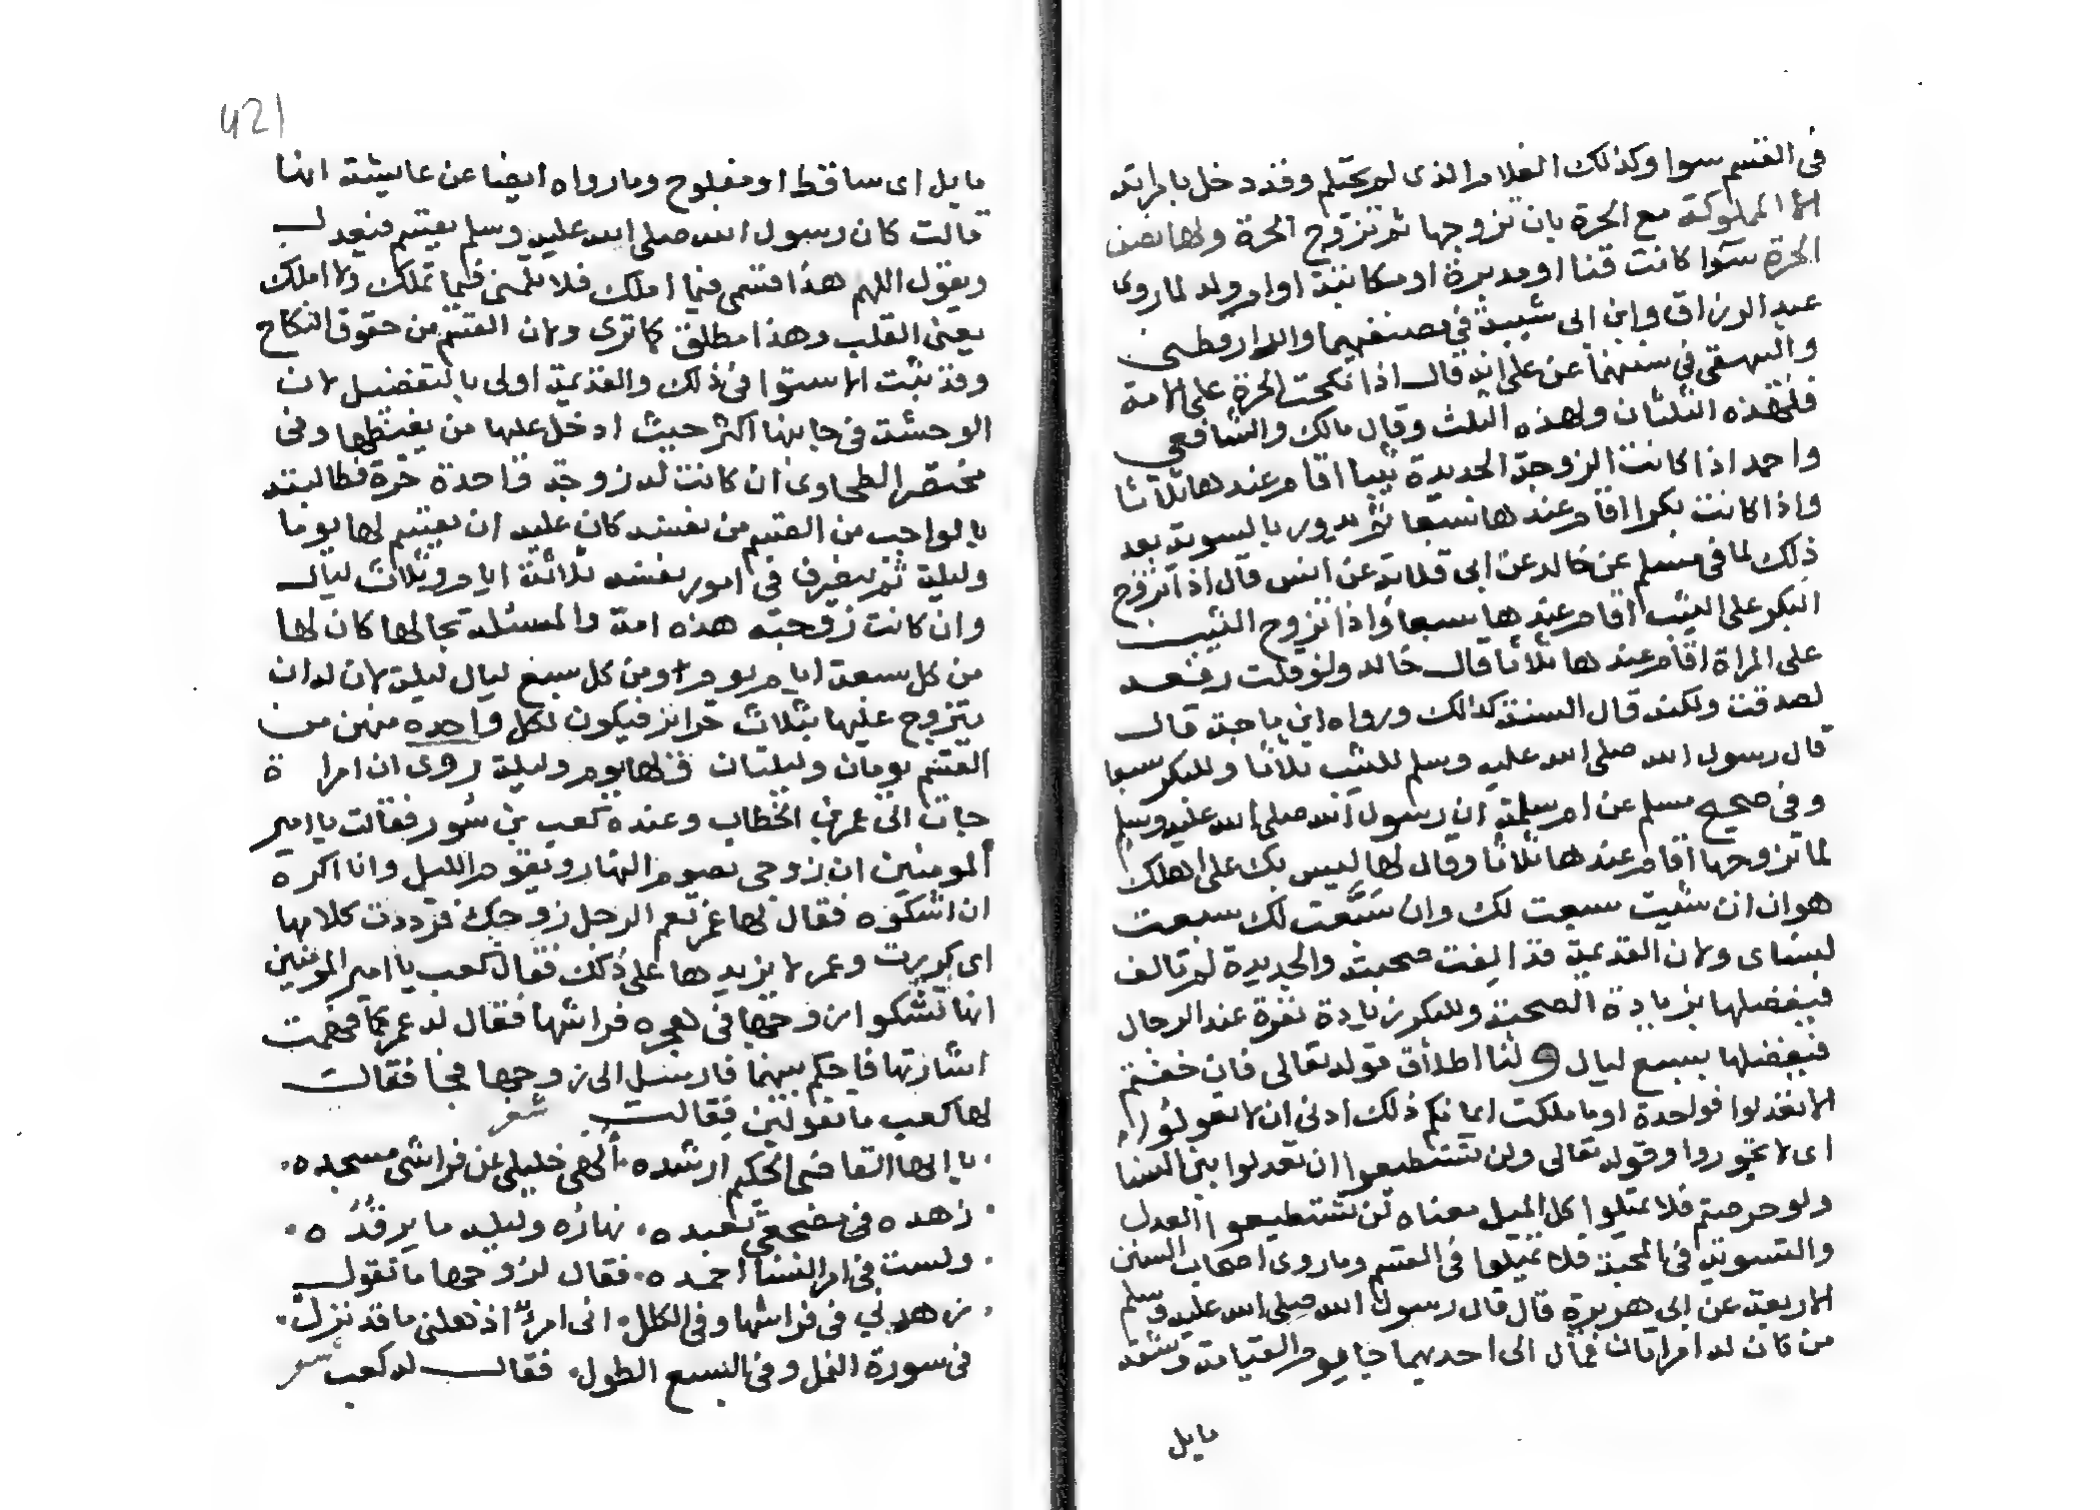 فى القسم سوا وكذلك الغلام الذى لم يحتلم وقد دخل بامراته
الا المملوكة مع الحرة بان تزوجها ثم تزوج الحرة ولها نصف
الحرة سوا كانت قنا او مدبرة او مكاتبة او ام ولد لما روى
عبد الرزاق وابن ابى شيبة فى مصنفيهما والدارقطنى
والبيهقى فى سننهما عن على انه قال اذا نكحت الحرة على الامة
فلهذه الثلثان ولهذه الثلث وقال مالك والشافعي
واحمد اذا كانت الزوجة الجديدة ثيبا اقام عندها ثلاثا
واذا كانت بكرا اقام عندها سبعا ثم يدور بالسوية بعد
ذلك لما فى مسلم عن خالد عن ابى قلابة عن انس قال اذا تزوج
البكر على الثيب اقام عندها سبعا واذا تزوج الثيب
على المراة اقام عندها ثلاثا قال خالد ولو قلت رفعه
لصدقت ولكنه قال السنة كذالك ورواه ابن ماجة قال
قال رسول الله صلى الله عليه وسلم للثيب ثلاثا وللبكر سبعا
وفى صحيح مسلم عن ام سلمة ان رسول الله صلى الله عليه وسلم
لما تزوجها اقام عندها ثلاثا وقال لها ليس بك على اهلك
هوان ان شيت سبعت لك وان سبعت لك سبعت
لنساى ولان القديمة قد الفت صحبته والجديدة لم تالف
فيفضلها بزيادة الصحبة وللبكر زيادة نفرة عند الرجال
فيفضلها بسبع ليال ولنا اطلاق قوله تعالى فان خفتم
الا تعدلوا فواحدة او ما ملكت ايمانكم ذلك ادنى ان لا تعولوا
اى لا تجوروا وقوله تعالى ولن تستطيعوا ان تعدلوا بين النسا
ولو حرصتم فلا تميلوا كل الميل معناه لن تستطيعوا العدل
والتسوية فى المحبة فلا تميلوا فى القسم وما روى اصحاب السنن
الاربعة عن ابى هريرة قال قال رسول الله صلى الله عليه وسلم
من كان له امراتان فمال الى احديهما جا يوم القيامة وشقه
مايل
421
مايل اى ساقط او مفلوج وما رواه ايضا عن عايشة انها
قالت كان رسول الله صلى الله عليه وسلم يقسم فيعدل
ويقول اللهم هذا قسمى فيما املك فلا تلمنى فيما تملك ولا املك
يعنى القلب وهذا مطلق كما ترى ولان القسم من حقوق النكاح
وقد ثبت الاستوا فى ذلك والقديمة اولى بالتفضيل لان
الوحشة فى جانبها اكثر حيث ادخل عليها من يغيظها وفى
مختصر الطحاوى ان كانت له زوجة واحدة حرة فطالبته
بالواجب من القسم من نفسه كان عليه ان يقسم لها يوما
وليلة ثم يتصرف فى امور نفسه ثلاثة ايام وثلاث ليال
وان كانت زوجته هذه امة والمسئلة بحالها كان لها
من كل سبعة ايام يوم ومن كل سبع ليال ليلة لان له ان
يتزوج عليها بثلاث حراير فيكون لكل واحده منهن من
القسم يومان وليلتان ولها يوم وليلة روى ان امراة
جات الى عمر بن الخطاب وعنده كعب بن سور فقالت يا امير
المومنين ان زوجى يصوم النهار ويقوم الليل وانا اكره
ان اشكوه فقال لها عمر نعم الرجل زوجك فرددت كلامها
اى كررت وعمر لا يزيدها على ذلك فقال كعب يا امير المومنين
انها تشكوا زوجها فى هجره فراشها فقال له عمر كما فهمت
اشارتها فاحكم بينهما فارسل الى زوجها فجا فقالت
لها كعب ما تقولين فقالت شعر
يا ايها القاضى الحكيم ارشده الهى خليلى عن فراشى مسجده
زهده فى مضجعى تعبده نهاره وليله ما يرقده
ولست فى امر النسا احمده فقال لزوجها ما تقول
زهدنى فى فراشها وفى الكلل انى امرؤ اذهلنى ما قد نزل
فى سورة النمل وفى السبع الطول فقال له كعب شعر